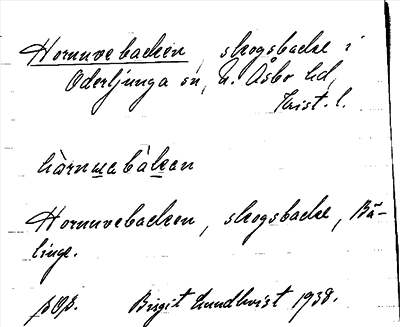 Hornuvebacken, skogsbacke i
Oderljunga sn, N. Åsbo hd,
Krist. l.
hàrnuebàkan
Hornuvebacken, skogsbacke, Bä-
linge.
Birgit Lundkvist 1938.